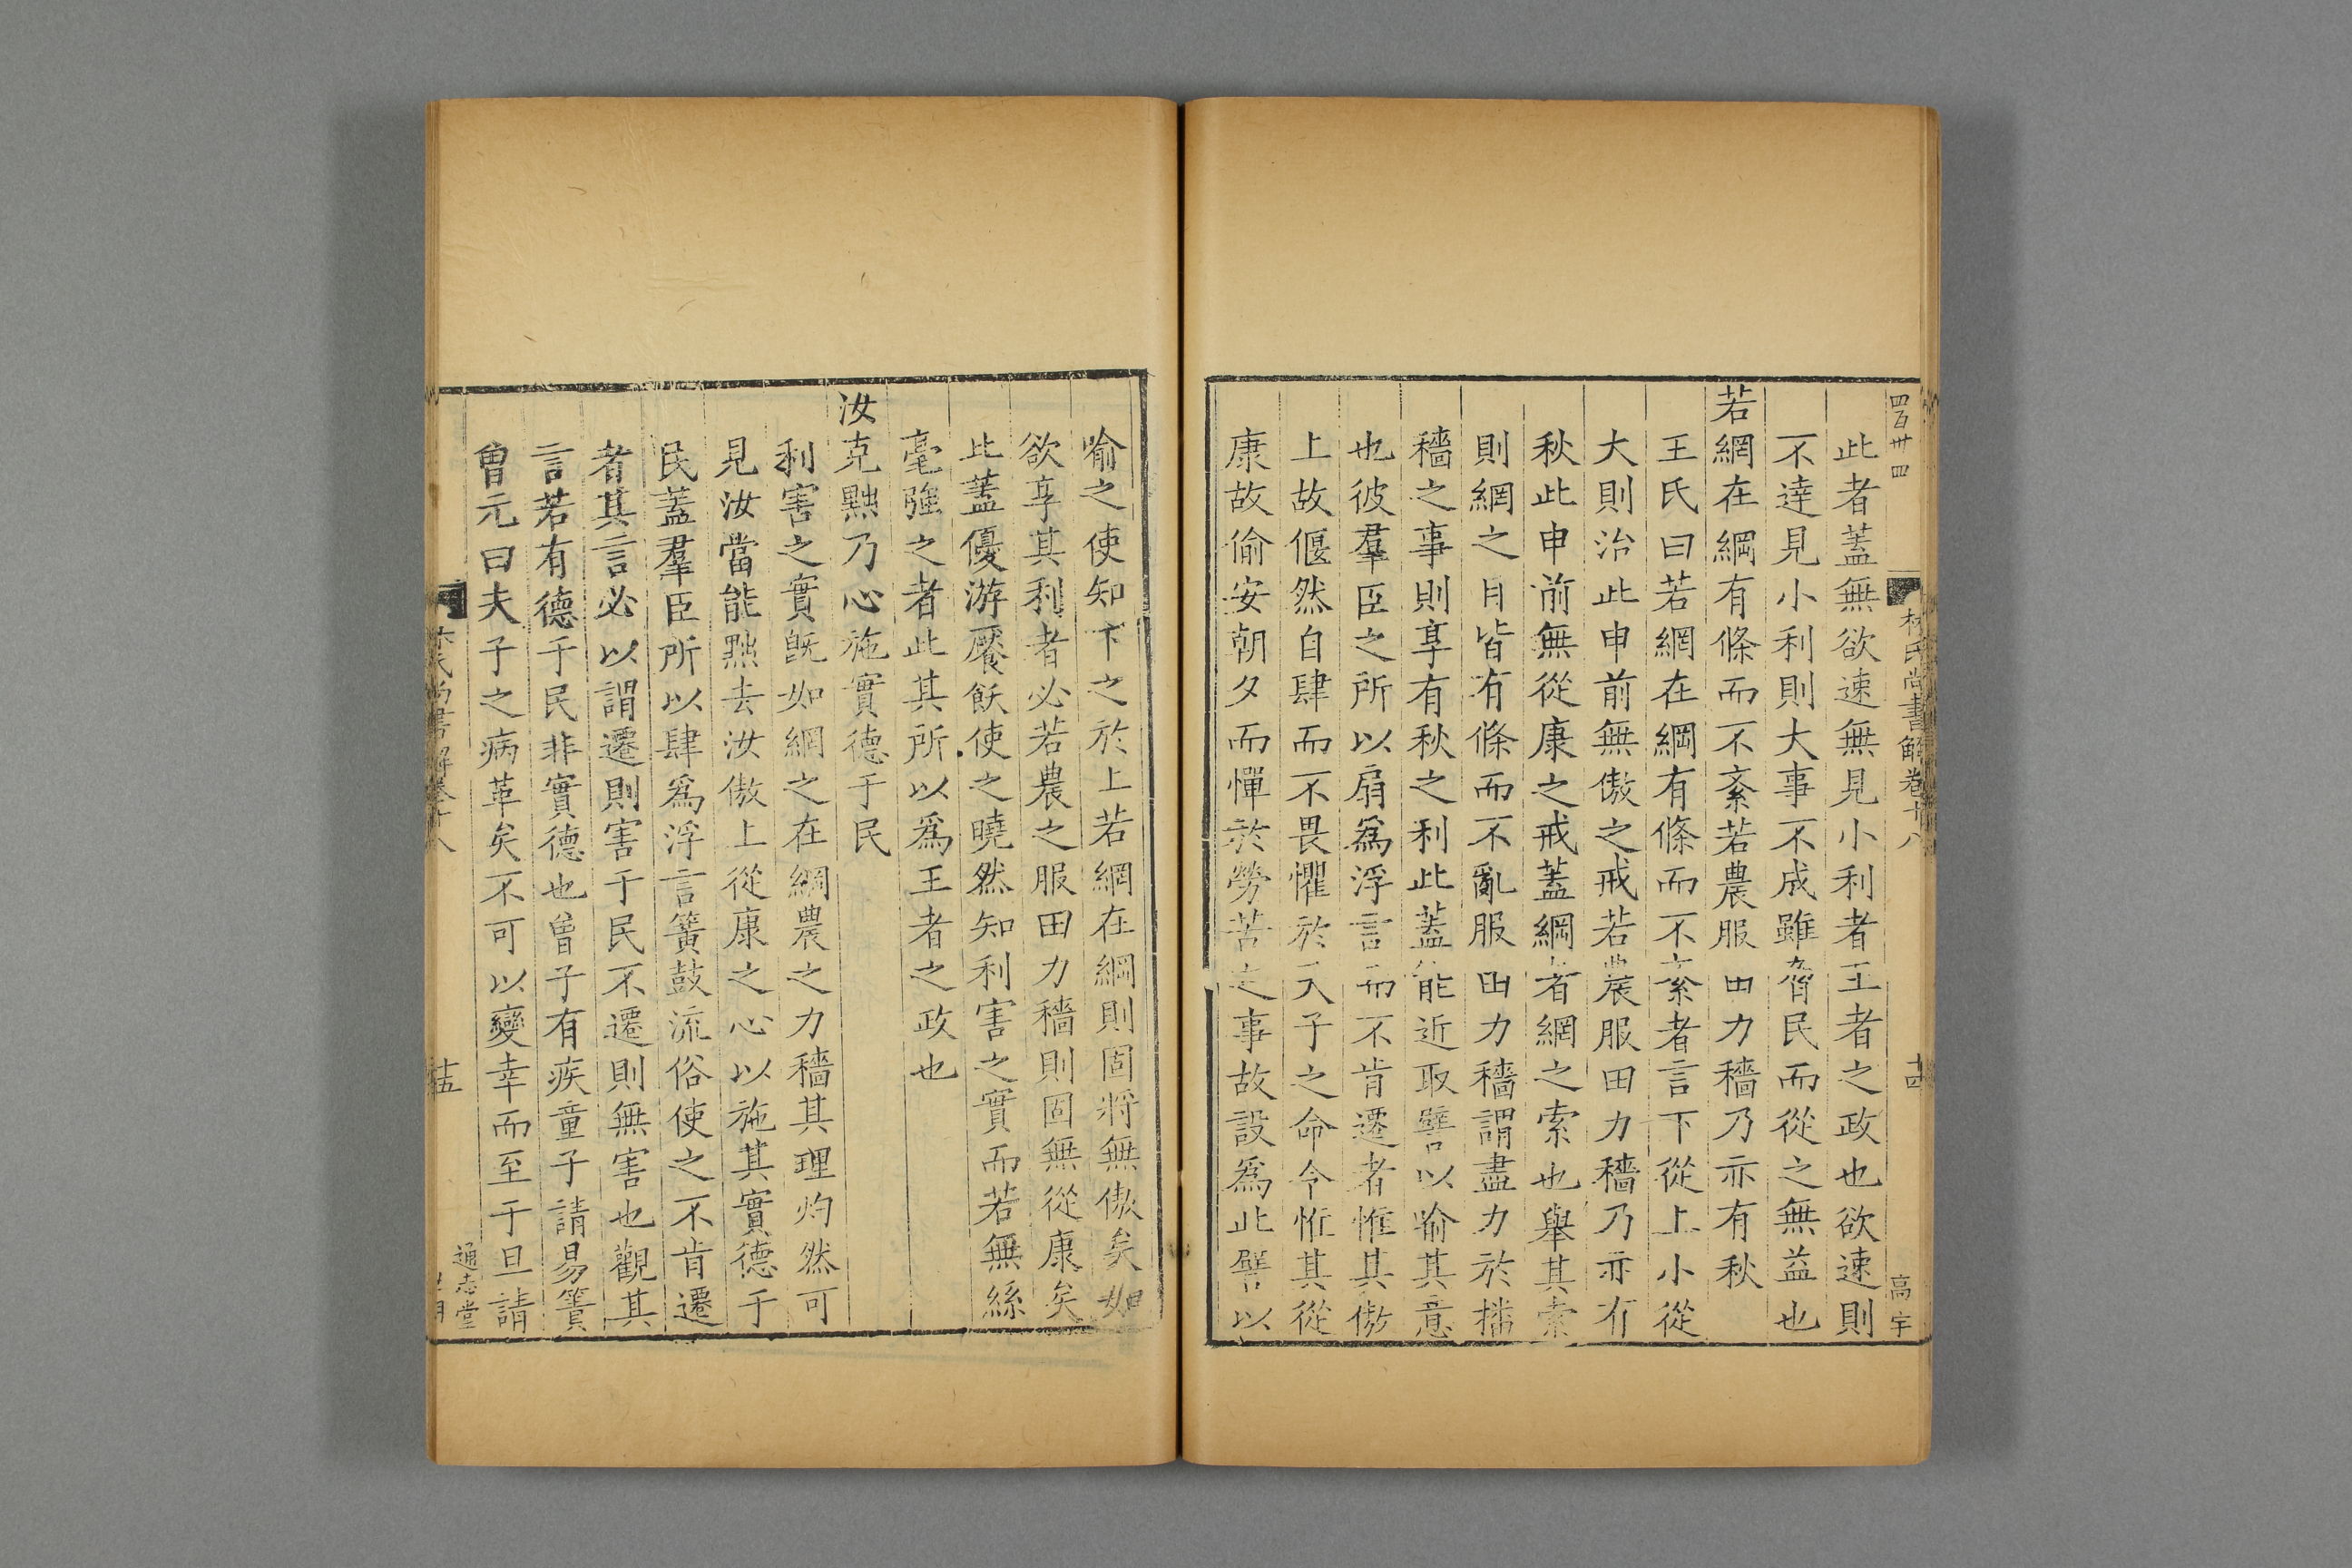 四百卅四
林氏尚書解卷十八
十四
高宇
此者蓋無欲速無見小利者王者之政也欲速則
不達見小利則大事不成雖脅民而從之無益也
若網在綱有條而不紊若農服田力穡乃亦有秋
王氏曰若網在綱有條而不紊者言下從上小從
大則治此申前無傲之戒若農服田力穡乃亦有
秋此申前無從康之戒蓋綱者網之索也舉其索
則網之目皆有條而不亂服田力穡謂盡力於播
穡之事則享有秋之利此蓋能近取譬以喻其意
也彼羣臣之所以扇為浮言而不肯遷者惟其傲
上故偃然自肆而不畏懼於天子之命令惟其從
康故偷安朝夕而憚於勞苦之事故設為此譬以
喻之使知下之於上若網在綱則固將無傲矣如
欲享其利者必若農之服田力穡則固無從康矣
此蓋優游饜飫使之曉然知利害之實而若無絲
毫強之者此其所以為王者之政也
汝克黜乃心施實德于民
利害之實既如網之在綱農之力穡其理灼然可
見汝當能黜去汝傲上從康之心以施其實德于
民蓋羣臣所以肆為浮言簧鼓流俗使之不肯遷
者其言必以謂遷則害于民不遷則無害也觀其
言若有德于民非實德也曾子有疾童子請易簀
曾元曰夫子之病革矣不可以變幸而至于旦請
林氏尚書解卷十八
十五
通志堂